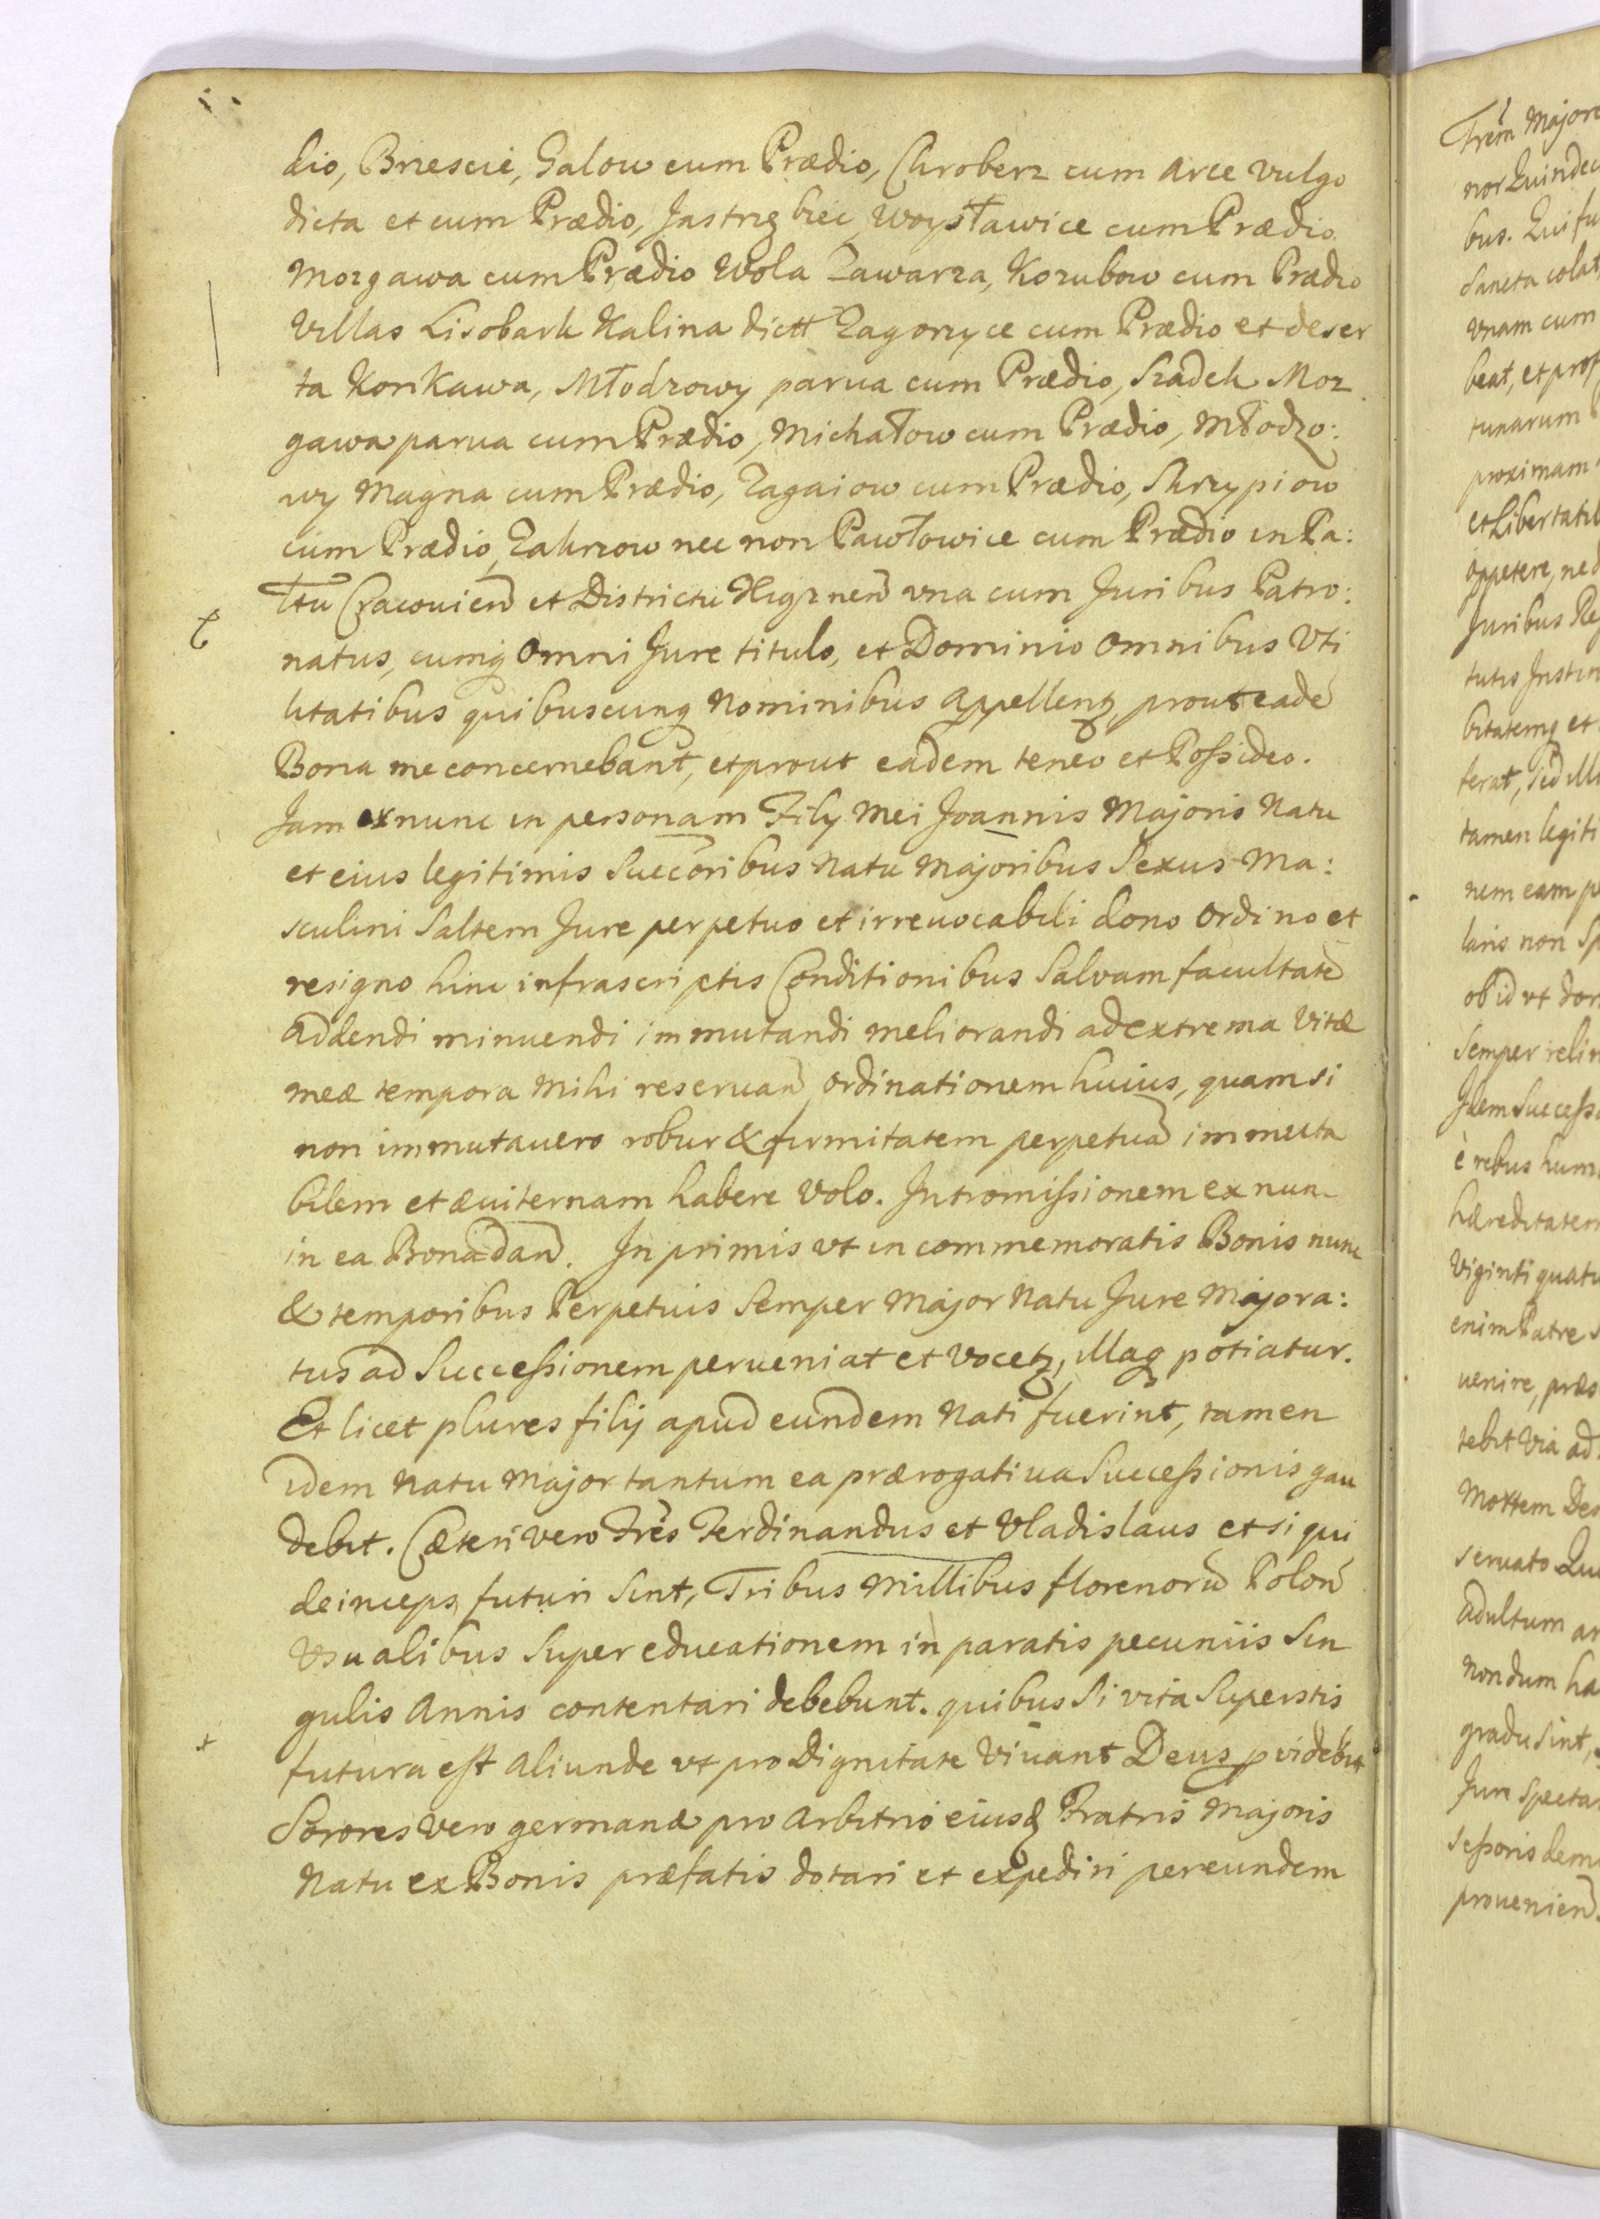 dio, Brzescie, Galow cum Prædio, Chroberz cum Arce vulgo
dicta et cum Prædio, Jastrzębiec, Woysławice cum Prædio
Mozgawa cum Prædio Wola Zawarza, Kozubow cum Prædio
Villas Lisobark Kalina dictt Zagorzyce cum Prædio et deser
ta Konkawa, Młodzowy parua cum Prædio, Sadek Moz
gawa parua cum Prædio, Michałow cum Prædio, Młodzo:
wy Magna cum Prædio, Zagaiow cum Prædio, Skrzypiow
cum Prædio, Zakrzow nec non Pawłowice cum Prædio in Pa:
łtū Cracouien̄ et Districtu Xięznen̄ vna cum Juribus Patro:
natus, cumq Omni Jure titulo, et Dominio Omnibus Vti
litatibus quibuscunq Nominibus Appellenq prout eadē
Bona me concernebant, et prout eadem teneo et Possideo.
Jam ex nunc in personam Fily Mei Joannis Majoris Natu
et eius legitimis Succōribus Natu Majoribus Sexus Ma:
sculini Saltem Jure perpetuo et irreuocabili dono Ordino et
resigno hinc infrascriptis Conditionibus Salvam facultatē
Addendi minuendi immutandi meliorandi ad extrema Vitæ
meæ tempora Mihi reseruan̄ Ordinationem huius, quam si
non immutauero robur & firmitatem perpetuā immuta
bilem et æuiternam habere Volo. Intromissionem ex nunc
in ea Bona dan̄. In primis vt in commemoratis Bonis nunc
& temporibus Perpetuis Semper Major Natu Jure Majora:
tus ad Successionem perueniat et Vocetq, illaq potiatur.
Et licet plures filij apud eundem Nati fuerint, tamen
idem Natu Major tantum ea prærogatiua Successionis gau
debit. Cæteri vero Frēs Ferdinandus et Vladislaus et si qui
deinceps futuri Sint, Tribus Millibus florenorū Polon̄
Vsualibus Super educationem in paratis pecuniis Sin
gulis Annis contentari debebunt. quibus Si vita Superstis
futura est Aliunde vt pro Dignitate Viuant Deus p videbit
Sorores Vero germanæ pro Arbitrio eiusd Fratris Majoris
Natu ex Bonis præfatis dotari et expediri per eundem
Frēm Majore
bus. Qui fu
Sancta colat
Vnam cum
beat, et prof
tunarum
proximam
et Libertatib
Oppetere, ned
Juribus Reg
bitatemq et
terat, Sed illi
tamen legiti
nem eam p
laris non Sp
ob id vt
Semper relin
Idem Success
è rebus hum
hæreditatem
Viginti quatu
enim Patre S
uenire, præs
tebit Via ad
Mortem Des
seruato Qu
Adultum an
Nondum ha
gradu Sint,
Jure Specta
sessoris dem
prouenien̄.